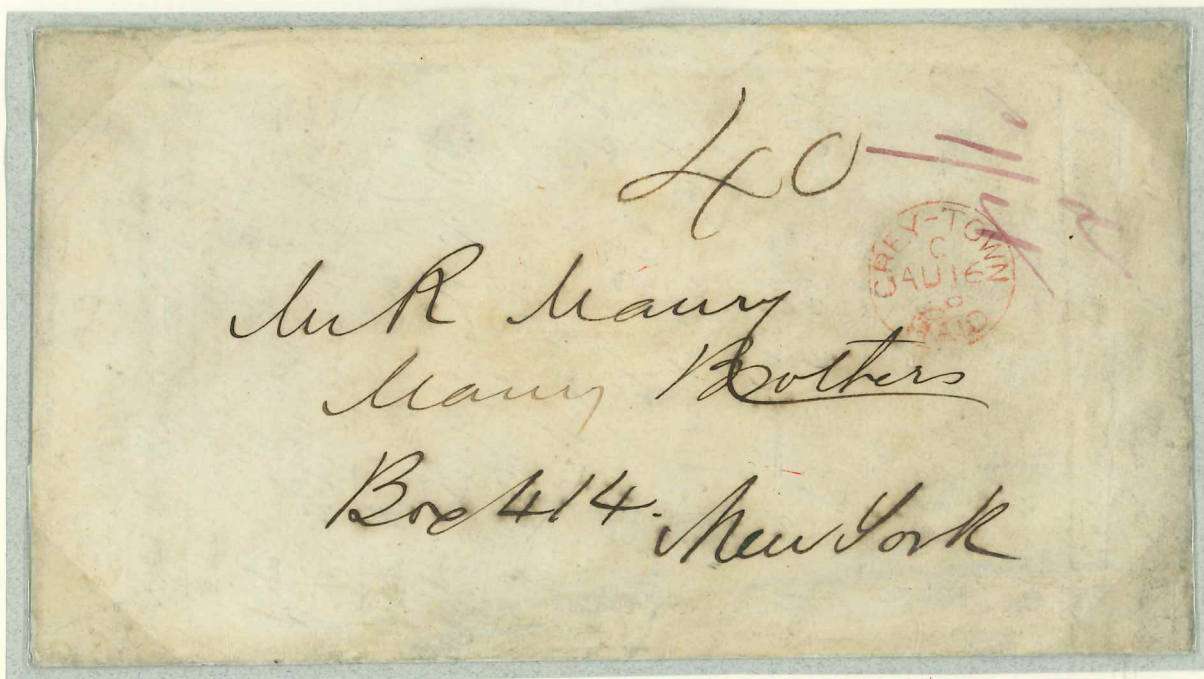 40
GREY-TOWN
C
AU 16
68
PAID
Mr R Maury
Maury Brothers
Box 414.
New York